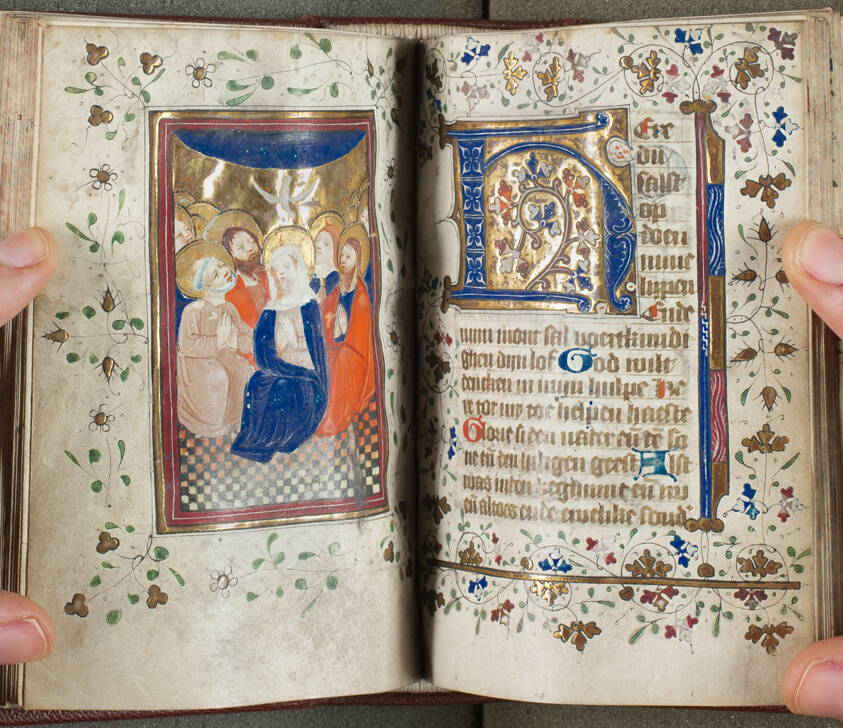 Here
du
salst
op
doen
mine
lippen
Ende
minn mont sal voertkundi
ghen dijn lof God wilt
dencken in minn hulpe He
re tot my tot helpen haeste
Glorie si den vader en̄ te so
ne en̄ den heiligen geest Alst
was inden beghinne en̄ nu
en̄ altoes ende ewelike sond'